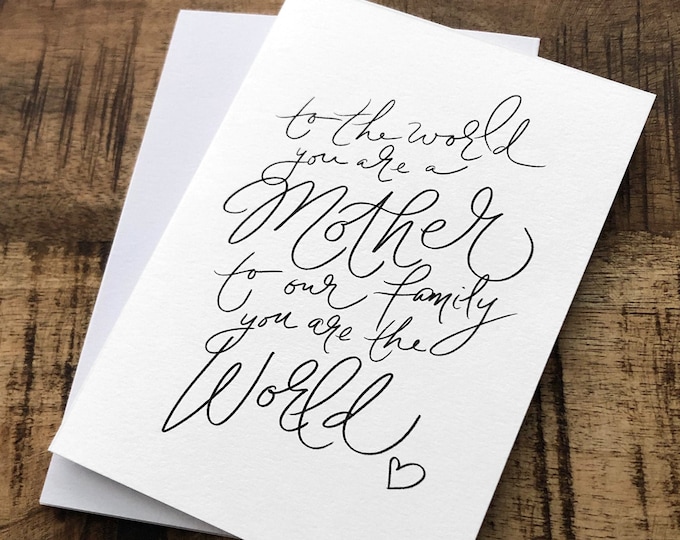 to the world
you are a
Mother
to our family
you are the
World